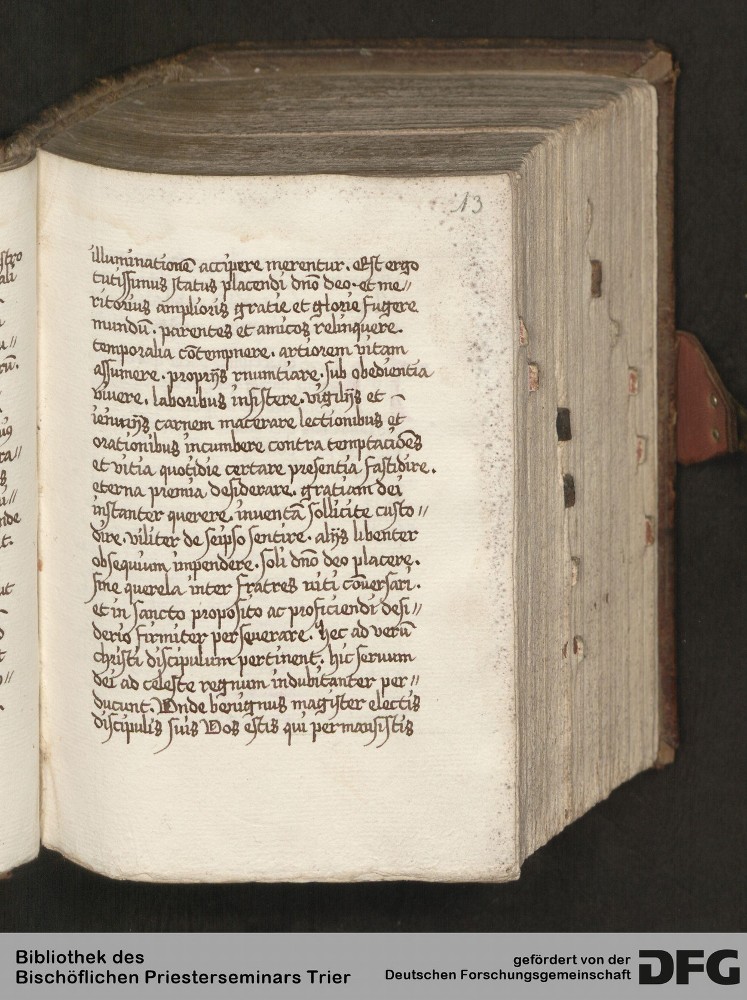 13
illuminationē accipere merentur. Est ergo
tutissimus status placendi dn̄o deo. et me//
ritorius amplioris gratie et glorie fugere
mundū. parentes et amicos relinquere.
temporalia cōtempnere. artiorem vitam
assumere. proprijs rnuntiare. sub obedientia
vivere. laboribus insistere. vigilijs et
ieiunijs carnem macerare lectionibus et
orationibus incumbere contra temptaciōēs
et vitia quotidie certare presentia fastidire.
eterna premia desiderare. gratiam dei
instanter querere. inventā sollicite custo//
dire. viliter de seipso sentire. alijs libenter
obsequium impendere. soli dn̄o deo placere.
sine querela inter fratres uiti cōuersari.
et in sancto proposito ac proficiendi desi//
derio firmiter perseuerare. hec ad verū
christi discipulum pertinent. hic seruum
dei ad celeste regnum indubitanter per//
ducunt. Vnde benignus magister electis
discipulis suis Vos estis qui permansistis
stro
ali
a//
rū.
ra//
nde
t.
ut
Bibliothek des
Bischöflichen Priesterseminars Trier
gefördert von der
Deutschen Forschungsgemeinschaft
DFG